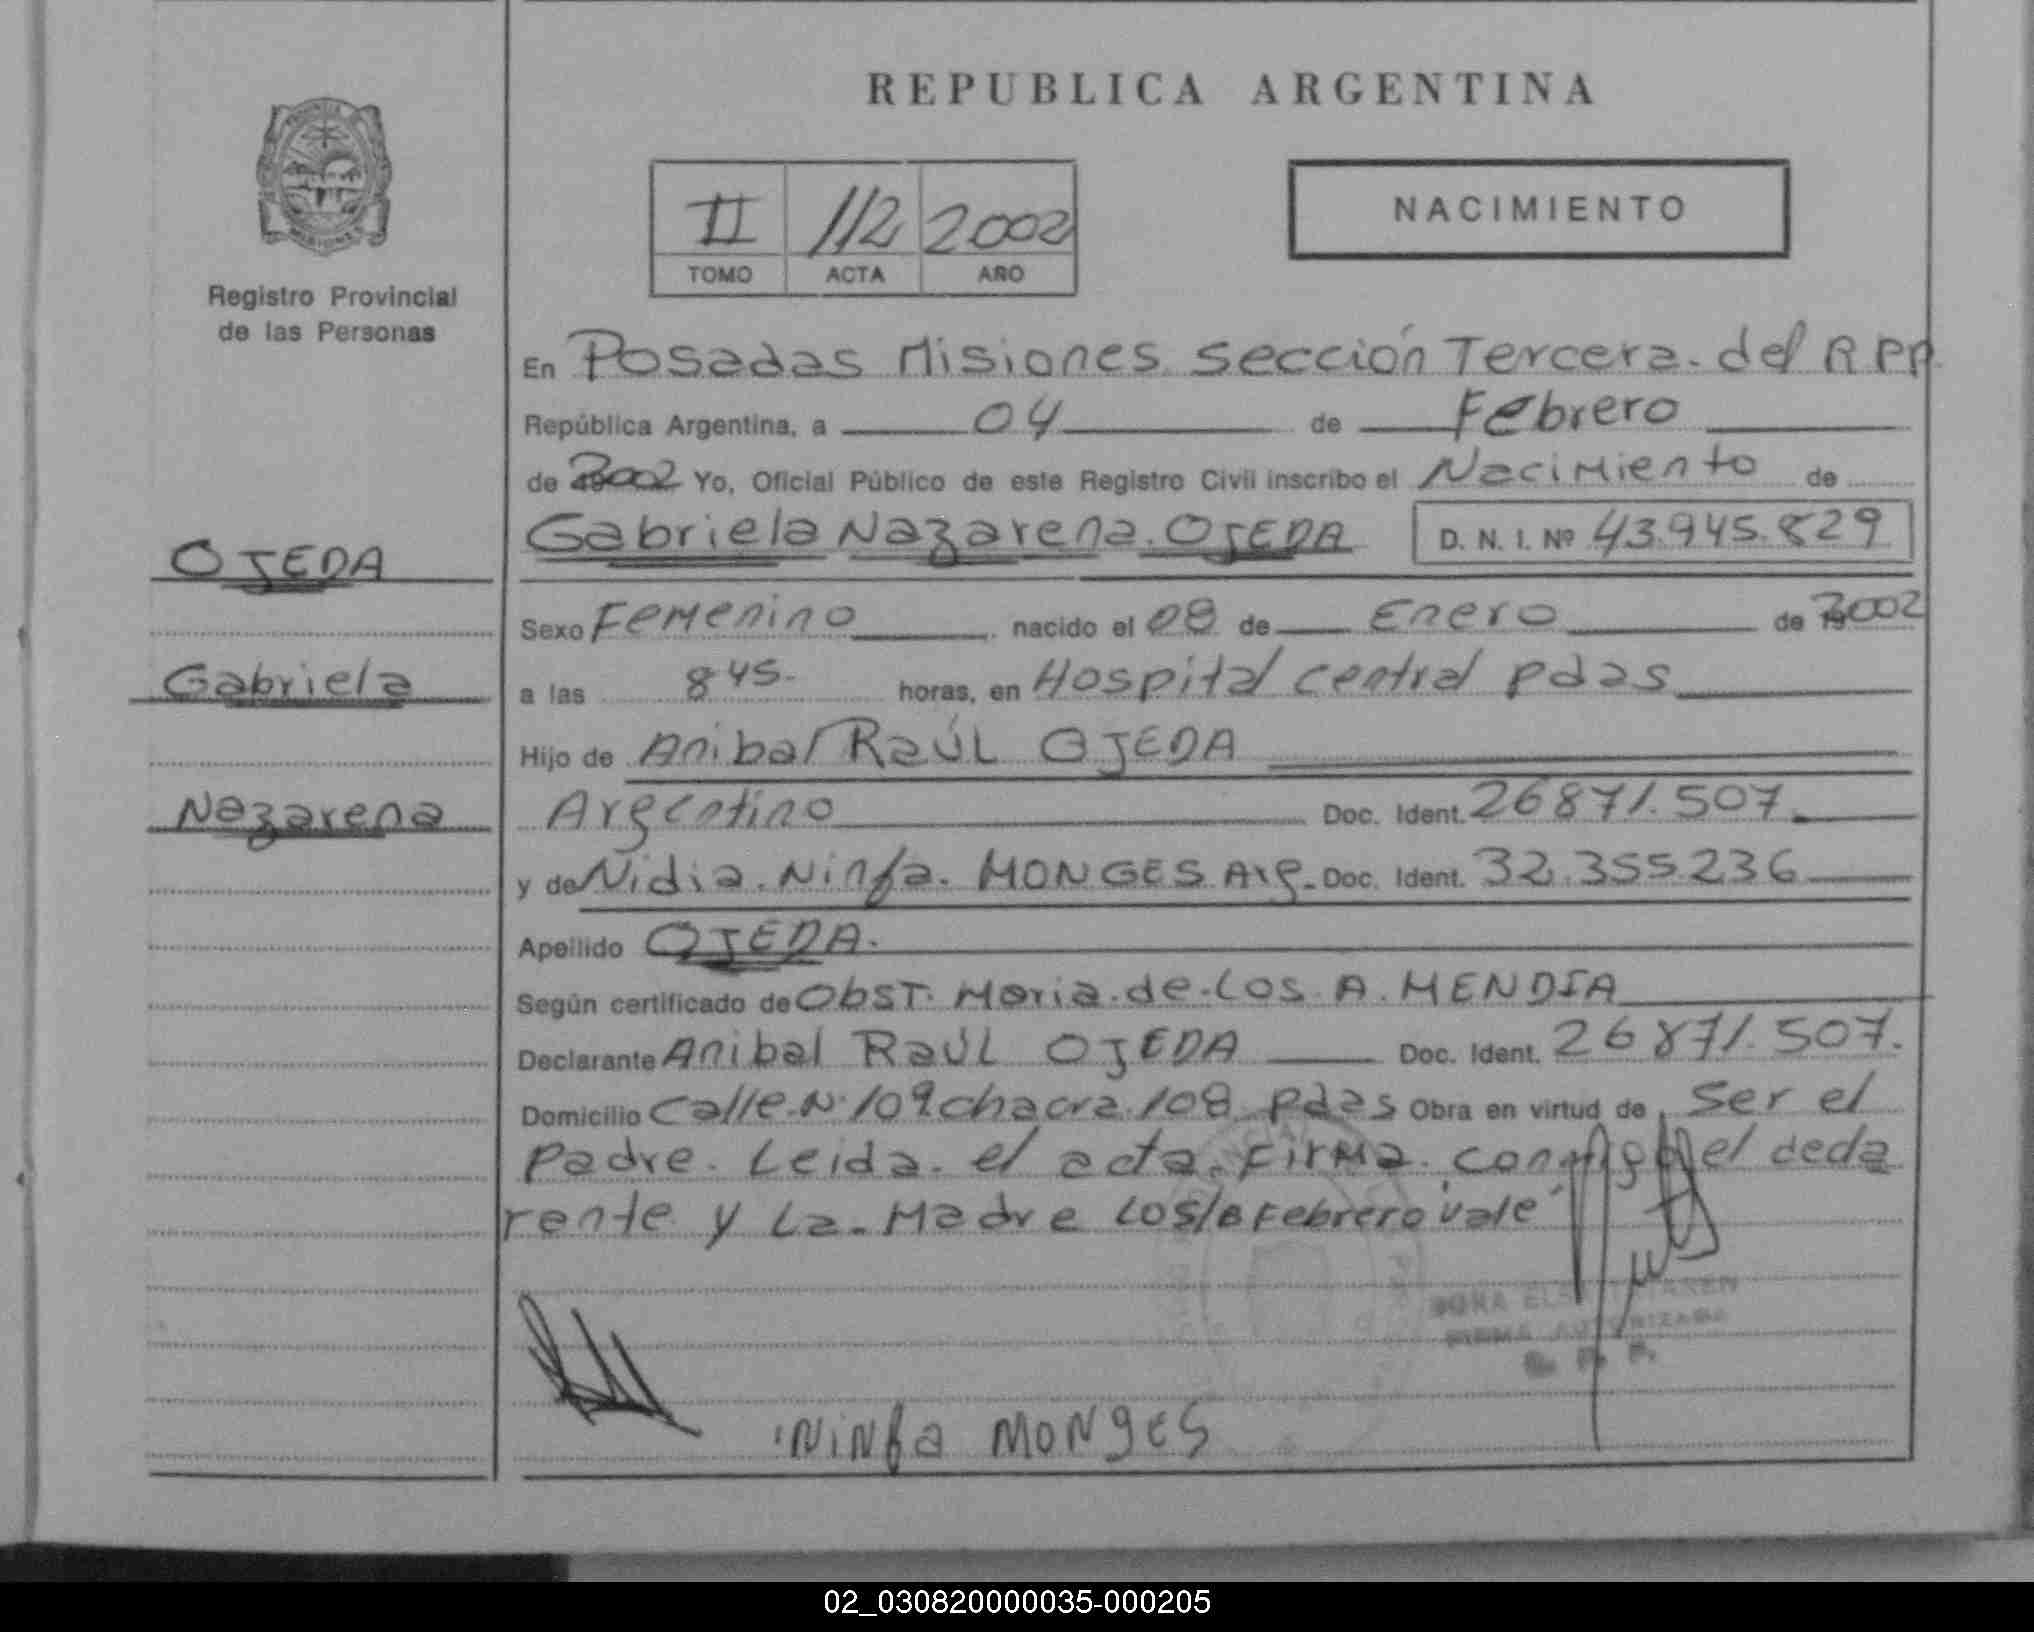 REPUBLICA ARGENTINA
PROVINCIA
MISIONES
Registro Provincial
de las Personas
II 112 2002
TOMO ACTA AÑO
NACIMIENTO
En Posadas Misiones Sección Tercera del R P P.
República Argentina, a 04 de Febrero
de 2002 Yo, Oficial Público de este Registro Civil inscribo el Nacimiento de
Gabriela Nazarena OJEDA D. N. I. Nº 43.945.829
OJEDA
Sexo Femenino nacido el 08 de Enero de 2002
Gabriela
a las 8 45 horas, en Hospital central pdas
Hijo de Anibal Raúl OJEDA
Nazarena
Argentino Doc. Ident. 26871.507.
y de Nidia Ninfa MONGES Arg. Doc. Ident. 32.355.236
Apellido OJEDA.
Según certificado de Obst. Maria de Los A. MENDIA
Declarante Anibal Raúl OJEDA Doc. Ident. 26871.507.
Domicilio Calle N 109 chacra 108 pdas Obra en virtud de Ser el
padre. Leida el acta. Firma el decla
rente y La Madre Febrero vale
FIRMA AUTORIZADA
NiNfa MONgES
02_030820000035-000205